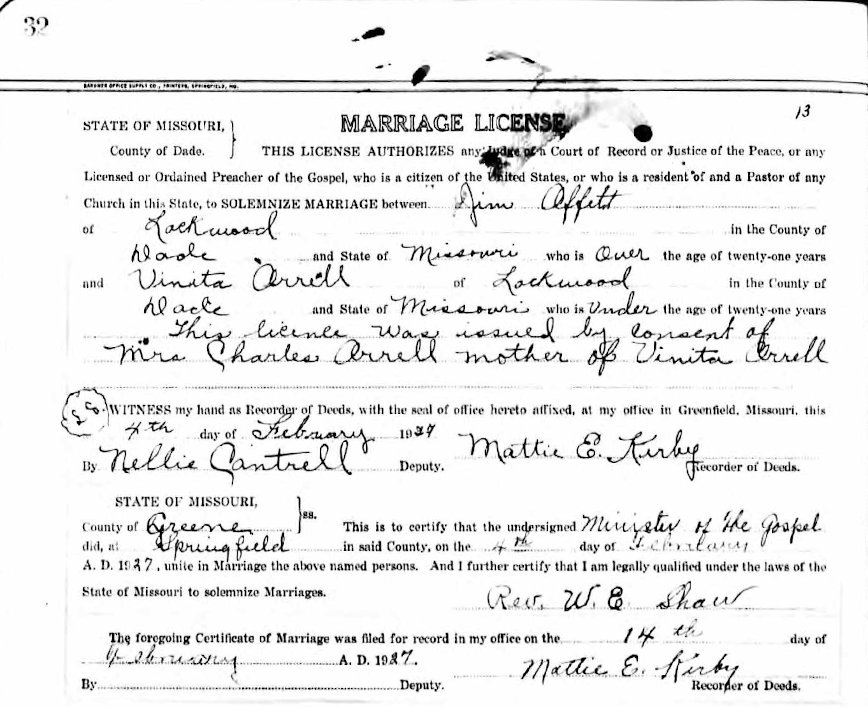 32
GARDNER OFFICE SUPPLY CO., PRINTERS, SPRINGFIELD, MO.
13
STATE OF MISSOURI,
MARRIAGE LICENSE
County of Dade. THIS LICENSE AUTHORIZES any Judge of a Court of Record or Justice of the Peace, or any
Licensed or Ordained Preacher of the Gospel, who is a citizen of the United States, or who is a resident of and a Pastor of any
Church in this State, to SOLEMNIZE MARRIAGE between Jim Affett
of Lockwood in the County of
Dade and State of Missouri who is Over the age of twenty-one years
and Vinita Arrell of Lockwood in the County of
Dade and State of Missouri who is Under the age of twenty-one years
This licence was issued by consent of
Mrs Charles Arrell mother of Vinita Arrell
WITNESS my hand as Recorder of Deeds, with the seal of office hereto affixed, at my office in Greenfield, Missouri, this
4th day of February 1927 Mattie E. Kirby
By Nellie Cantrell Deputy. Recorder of Deeds.
STATE OF MISSOURI,
County of Greene ss. This is to certify that the undersigned Minister of the Gospel
did, at Springfield in said County, on the 4th day of February
A. D. 1927, unite in Marriage the above named persons. And I further certify that I am legally qualified under the laws of the
State of Missouri to solemnize Marriages.
Rev. W. E. Shaw
The foregoing Certificate of Marriage was filed for record in my office on the 14th day of
February A. D. 1927.
Mattie E. Kirby
By Deputy. Recorder of Deeds.